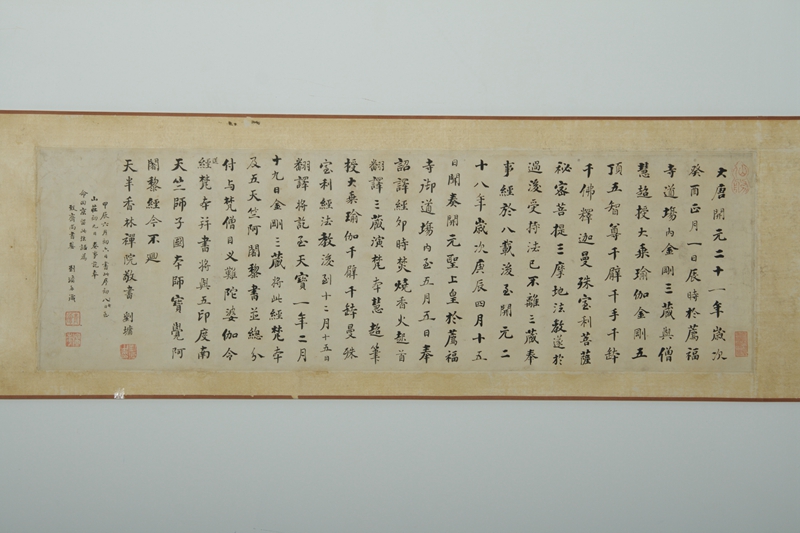 大唐開元二十一年歲次
癸酉正月一日辰時於薦福
寺道場內金剛三藏與僧
慧超授大乘瑜伽金剛五
頂五智尊千臂千手千鉢
千佛釋迦曼殊室利菩薩
秘密菩提三摩地法教遂於
過後受持法已不離三藏奉
事經於八載後至開元二
十八年歲次庚辰四月十五
日聞奏開元聖上皇於薦福
寺御道場內至五月五日奉
詔譯經卯時焚燒香火起首
翻譯三藏演梵本慧超筆
授大乘瑜伽千臂千鉢曼殊
室利經法教後到十二月十五日
翻譯將訖至天寶一年二月
十九日金剛三藏將此經梵本
及五天竺阿闍黎書並總分
付与梵僧目叉難陀婆伽令
送經梵本并書將與五印度南
天竺師子國本師寶覺阿
闍黎經今不迴
天半香林禪院敬書 劉墉
甲辰六月初六日書此序
山莊
劉墉